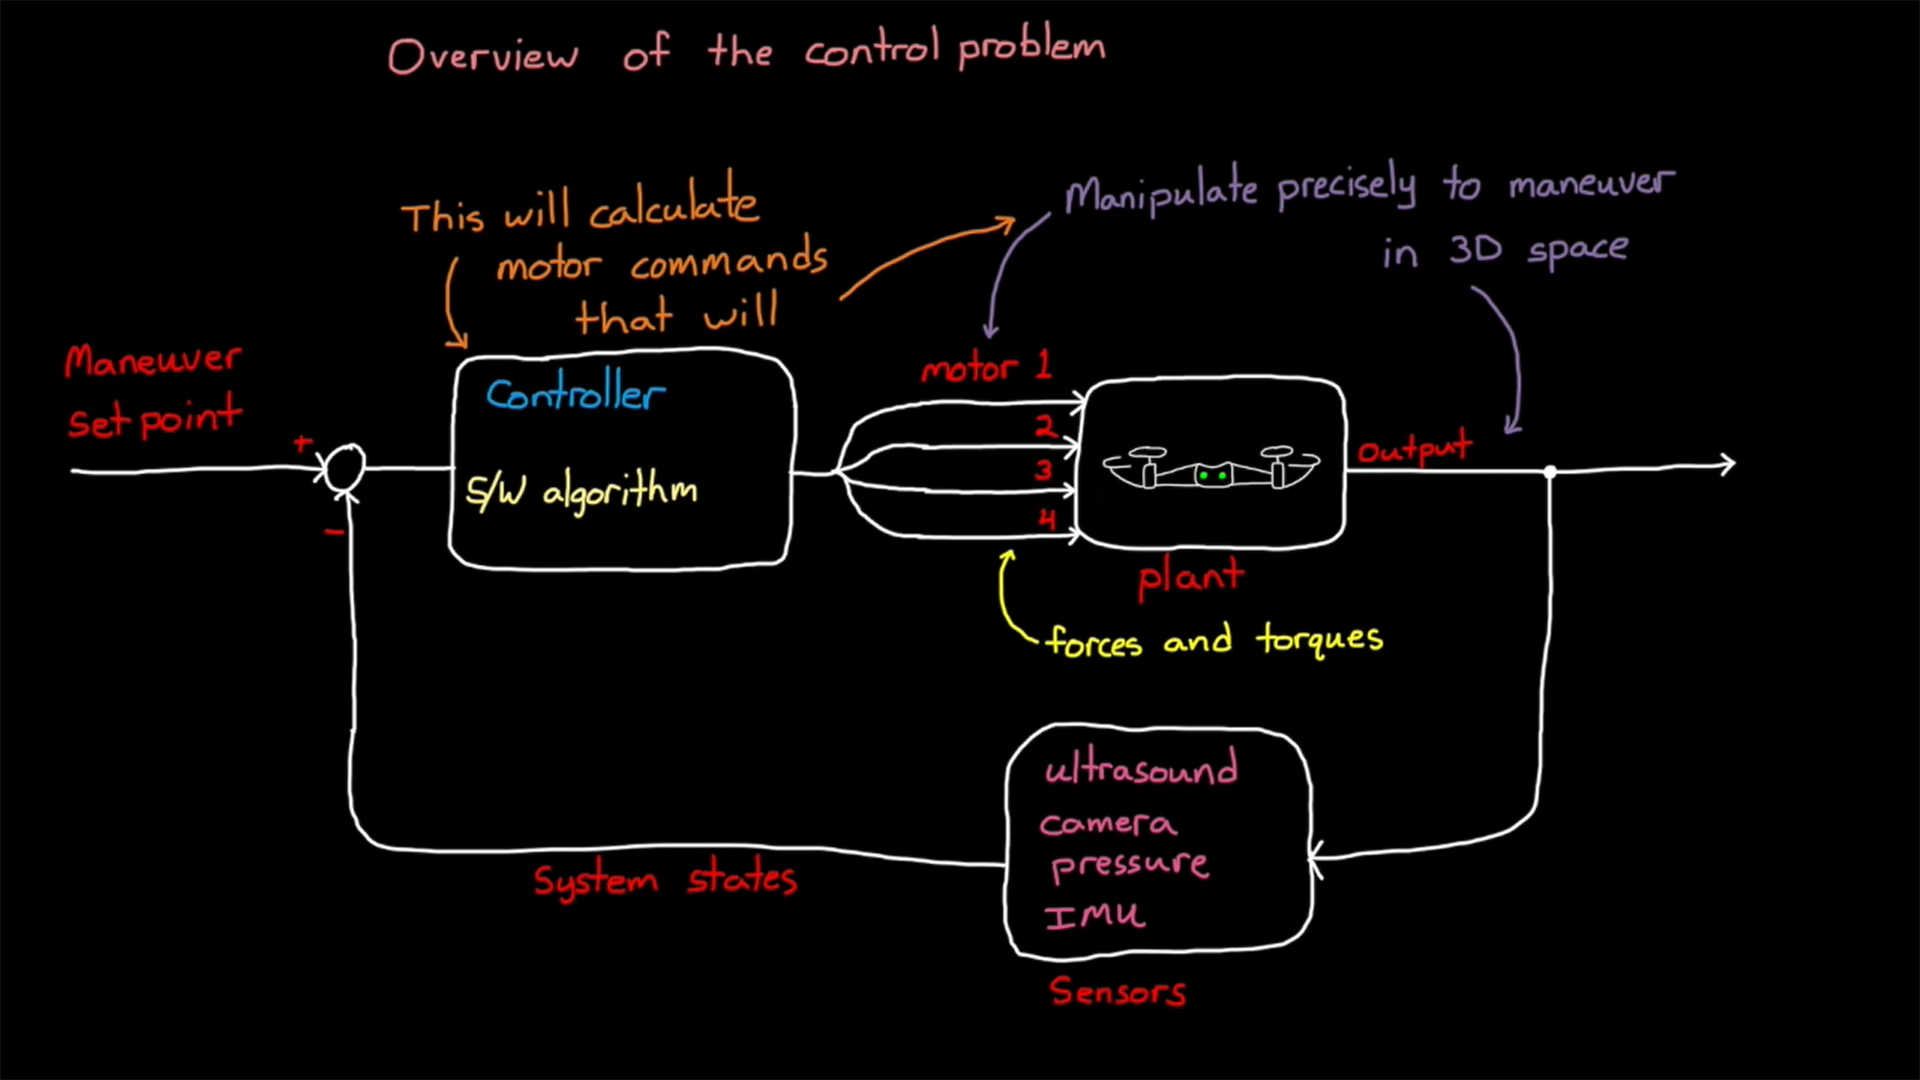 Overview of the control problem
This will calculate
motor commands
that will
Manipulate precisely to maneuver
in 3D space
Maneuver
setpoint
+
-
Controller
S/W algorithm
motor 1
2
3
4
output
plant
forces and torques
ultrasound
camera
pressure
IMU
System states
Sensors